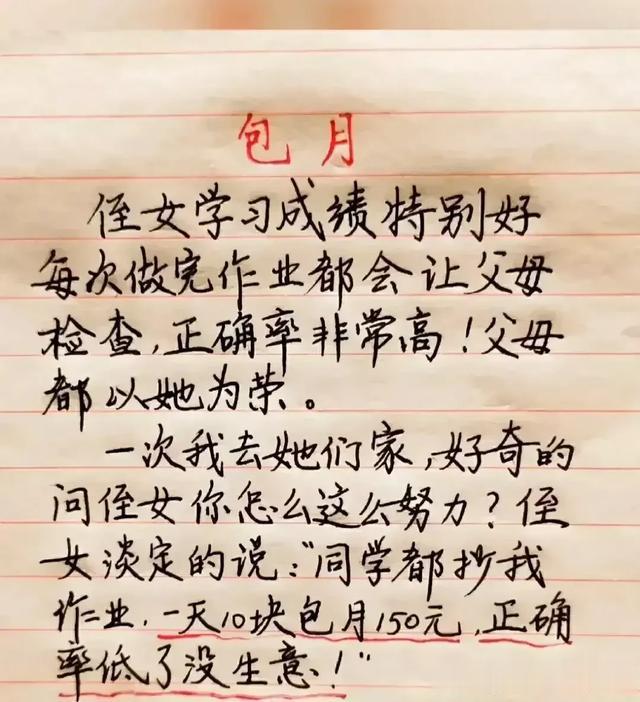 包月
侄女学习成绩特别好
每次做完作业都会让父母
检查,正确率非常高!父母
都以她为荣。
一次我去她们家,好奇的
问侄女你怎么这么努力?侄
女淡定的说:"同学都抄我
作业,一天10块包月150元,正确
率低了没生意!"